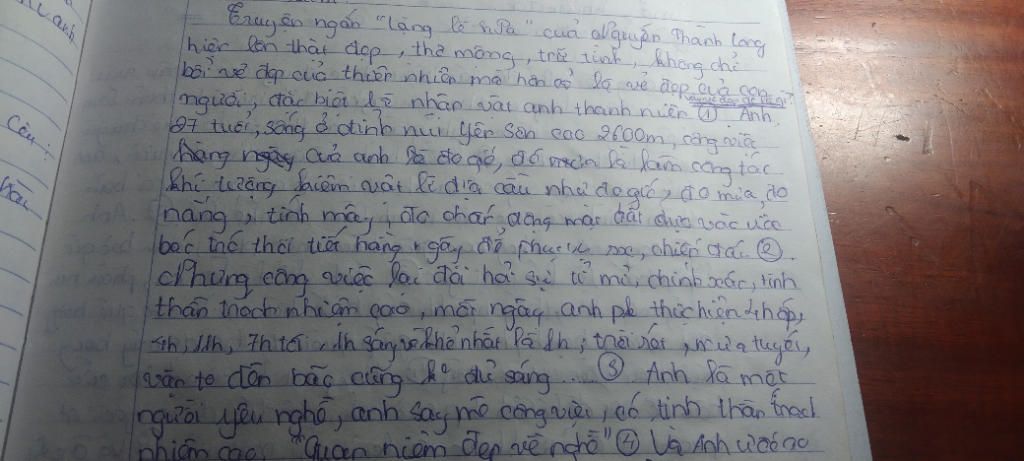 Truyện ngắn "Lặng lẽ SaPa" của Nguyễn Thành Long
hiện lên thật đẹp, thơ mộng, trữ tình, không chỉ
bởi vẻ đẹp của thiên nhiên mà hơn cả là vẻ đẹp của con
người, đặc biệt là nhân vật anh thanh niên ① Anh
27 tuổi, sống ở đỉnh núi Yên Sơn cao 2600m, công việc
hàng ngày của anh là đo gió, là làm công tác
khí tượng kiêm vật lí địa cầu như đo gió, đo mưa, đo
nắng, tính mây, đo chấn động mặt đất dựa vào việc
báo thời tiết hàng ngày để phục vụ sx, chiến đấu ②.
Nhưng công việc lại đòi hỏi sự tỉ mỉ, chính xác, tinh
thần trách nhiệm cao, mỗi ngày anh phải thực hiện 4
11h, 7h tối 1h sáng và khó nhất là 1h, trời rét, mưa tuyết,
vặn to đèn bão cũng ko đủ sáng... ③ Anh là một
người yêu nghề, anh say mê công việc, có tinh thần trách
nhiệm cao "Quan niệm đẹp về nghề" ④ Và Anh
Câu: